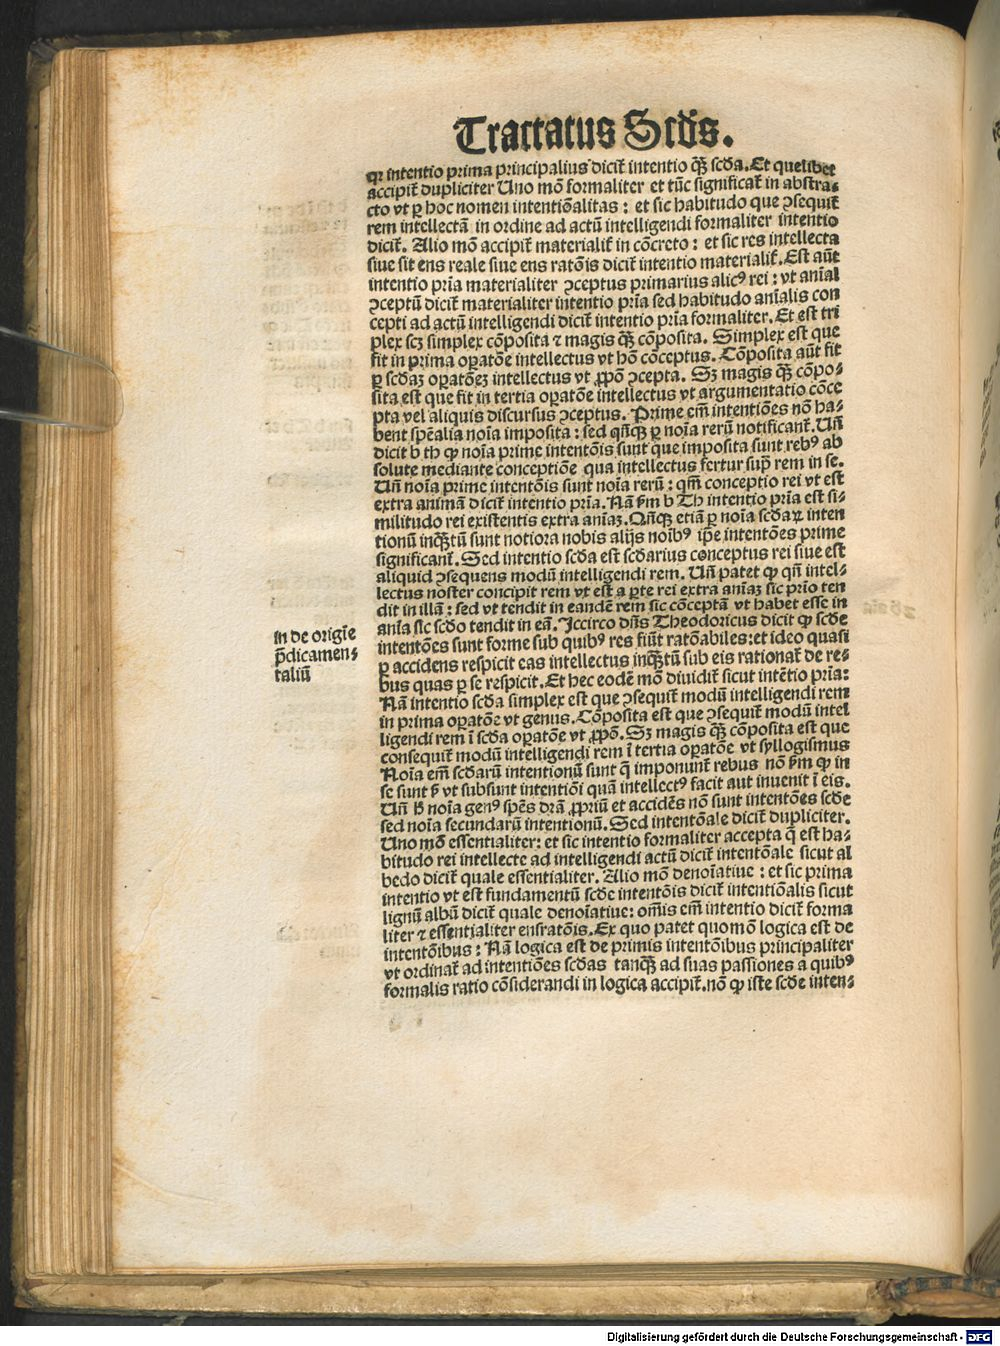 Tractatus Scd̄s.
qꝛ intentio prima principalius dicit̄ intentio qȝ̄ scd̄a. Et quelibet
accipit̄ dupliciter Uno mō formaliter et tūc significat̄ in abstra⸗
cto vt ꝑ hoc nomen intentiōalitas: et sic habitudo que ꝯsequit̄
rem intellectā in ordine ad actū intelligendi formaliter intentio
dicit̄. Alio mō accipit̄ materialit̄ in cōcreto: et sic res intellecta
siue sit ens reale siue ens ratōis dicit̄ intentio materialit̄. Est aūt
intentio pri̅a materialiter ꝯceptus primarius alicꝰ rei: vt ani̅al
ꝯceptū dicit̄ materialiter intentio pri̅a sed habitudo ani̅alis con
cepti ad actū intelligendi dicit̄ intentio pri̅a formaliter. Et est tri
plex scȝ simplex cōposita ⁊ magis qȝ̄ cōposita. Simplex est que
fit in prima oꝑatōe intellectus vt hō cōceptus. Cōposita aūt fit
ꝑ scd̄aȝ oꝑatōeȝ intellectus vt ꝓpō ꝯcepta. Sȝ magis qȝ̄ cōpo⸗
sita est que fit in tertia oꝑatōe intellectus vt argumentatio cōce
pta vel aliquis discursus ꝯceptus. Prime em̄ intentiōes nō ha⸗
bent spe̅alia noi̅a imposita: sed qn̄qȝ ꝑ noi̅a rerū notificant̄. Un̄
dicit b th ꝙ noi̅a prime intentōis sunt que imposita sunt rebꝰ ab
solute mediante conceptiōe qua intellectus fertur supꝛ̄ rem in se.
Un̄ noi̅a prime intentōis sunt noi̅a rerū: qm̄ conceptio rei vt est
extra animā dicit̄ intentio pri̅a. Nā ẜm b Th intentio pri̅a est si⸗
militudo rei existentis extra ani̅aȝ. Qn̄qȝ etiā ꝑ noi̅a scd̄aꝝ inten
tionū inqȝ̄tū sunt notiora nobis alijs noi̅bꝰ ip̄e intentōes prime
significant̄. Sed intentio scd̄a est scd̄arius conceptus rei siue est
aliquid ꝯsequens modū intelligendi rem. Un̄ patet ꝙ qn̄ intel⸗
lectus noster concipit rem vt est a ꝑte rei extra ani̅aȝ sic pri̅o ten
dit in illā: sed vt tendit in eandē rem sic cōceptā vt habet esse in
ani̅a sic scd̄o tendit in eā. Iccirco dn̄s Theodoricus dicit ꝙ scd̄e
intentōes sunt forme sub quibꝰ res fiūt ratōabiles: et ideo quasi
ꝑ accidens respicit eas intellectus inqȝ̄tū sub eis rationat̄ de re⸗
bus quas ꝑ se respicit. Et hec eodē mō diuidit̄ sicut intētio pri̅a:
Nā intentio scd̄a simplex est que ꝯsequit̄ modū intelligendi rem
in prima oꝑatōe vt genus. Cōposita est que ꝯsequit̄ modū intel
ligendi rem ī scd̄a oꝑatōe vt ꝓpō. Sȝ magis qȝ̄ cōposita est que
consequit̄ modū intelligendi rem ī tertia oꝑatōe vt syllogismus
Noi̅a em̄ scd̄arū intentionū sunt q̄ imponunt̄ rebus nō ẜm ꝙ in
se sunt ẜ vt subsunt intentiōi quā intellectꝰ facit aut inuenit ī eis.
Un̄ hꝰ noi̅a genꝰ spēs drā ꝓpriū et accidēs nō sunt intentōes scd̄e
sed noi̅a secundarū intentionū. Sed intentōale dicit̄ dupliciter.
Uno mō essentialiter: et sic intentio formaliter accepta q̄ est ha⸗
bitudo rei intellecte ad intelligendi actū dicit̄ intentōale sicut al
bedo dicit̄ quale essentialiter. Alio mō denoi̅atiue: et sic prima
intentio vt est fundamentū scd̄e intentōis dicit̄ intentiōalis sicut
lignū albū dicit̄ quale denoi̅atiue: omi̅s em̄ intentio dicit̄ forma
liter ⁊ essentialiter ens ratōis. Ex quo patet quomō logica est de
intentōibus: Nā logica est de primis intentōibus principaliter
vt ordinat̄ ad intentiōes scd̄as tanqȝ̄ ad suas passiones a quibꝰ
formalis ratio cōsiderandi in logica accipit̄. nō ꝙ iste scd̄e inten⸗
in de origi̅e
p̄dicamen⸗
taliū
Digitalisierung gefördert durch die Deutsche Forschungsgemeinschaft - DFG